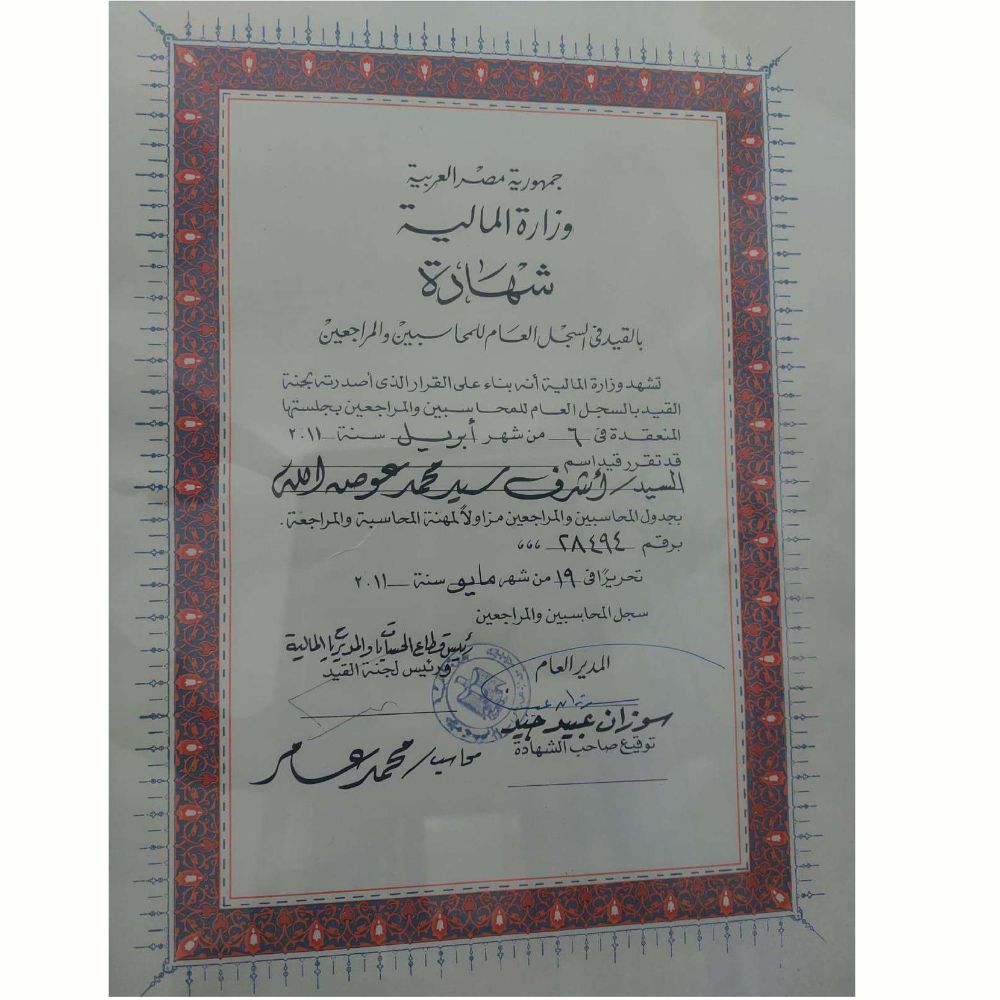 جمهورية مصر العربية
وزارة المالية
شهادة
بالقيد فى السجل العام للمحاسبين والمراجعين
تشهد وزارة المالية أنه بناء على القرار الذى أصدرته لجنة
القيد بالسجل العام للمحاسبين والمراجعين بجلستها
المنعقدة فى ٦ من شهر أبريل سنة ٢٠١١
قد تقرر قيد اسم
السيد / أشرف سيد محمد عوض الله
بجدول المحاسبين والمراجعين مزاولاً لمهنة المحاسبة والمراجعة .
برقم ٢٨٤٩٤ ،،،
تحريرًا فى ١٩ من شهر مايو سنة ٢٠١١
سجل المحاسبين والمراجعين
المدير العام
رئيس قطاع الحسابات والمديريات المالية
ورئيس لجنة القيد
سوزان عبيد
توقيع صاحب الشهادة
محاسب / محمد عامر